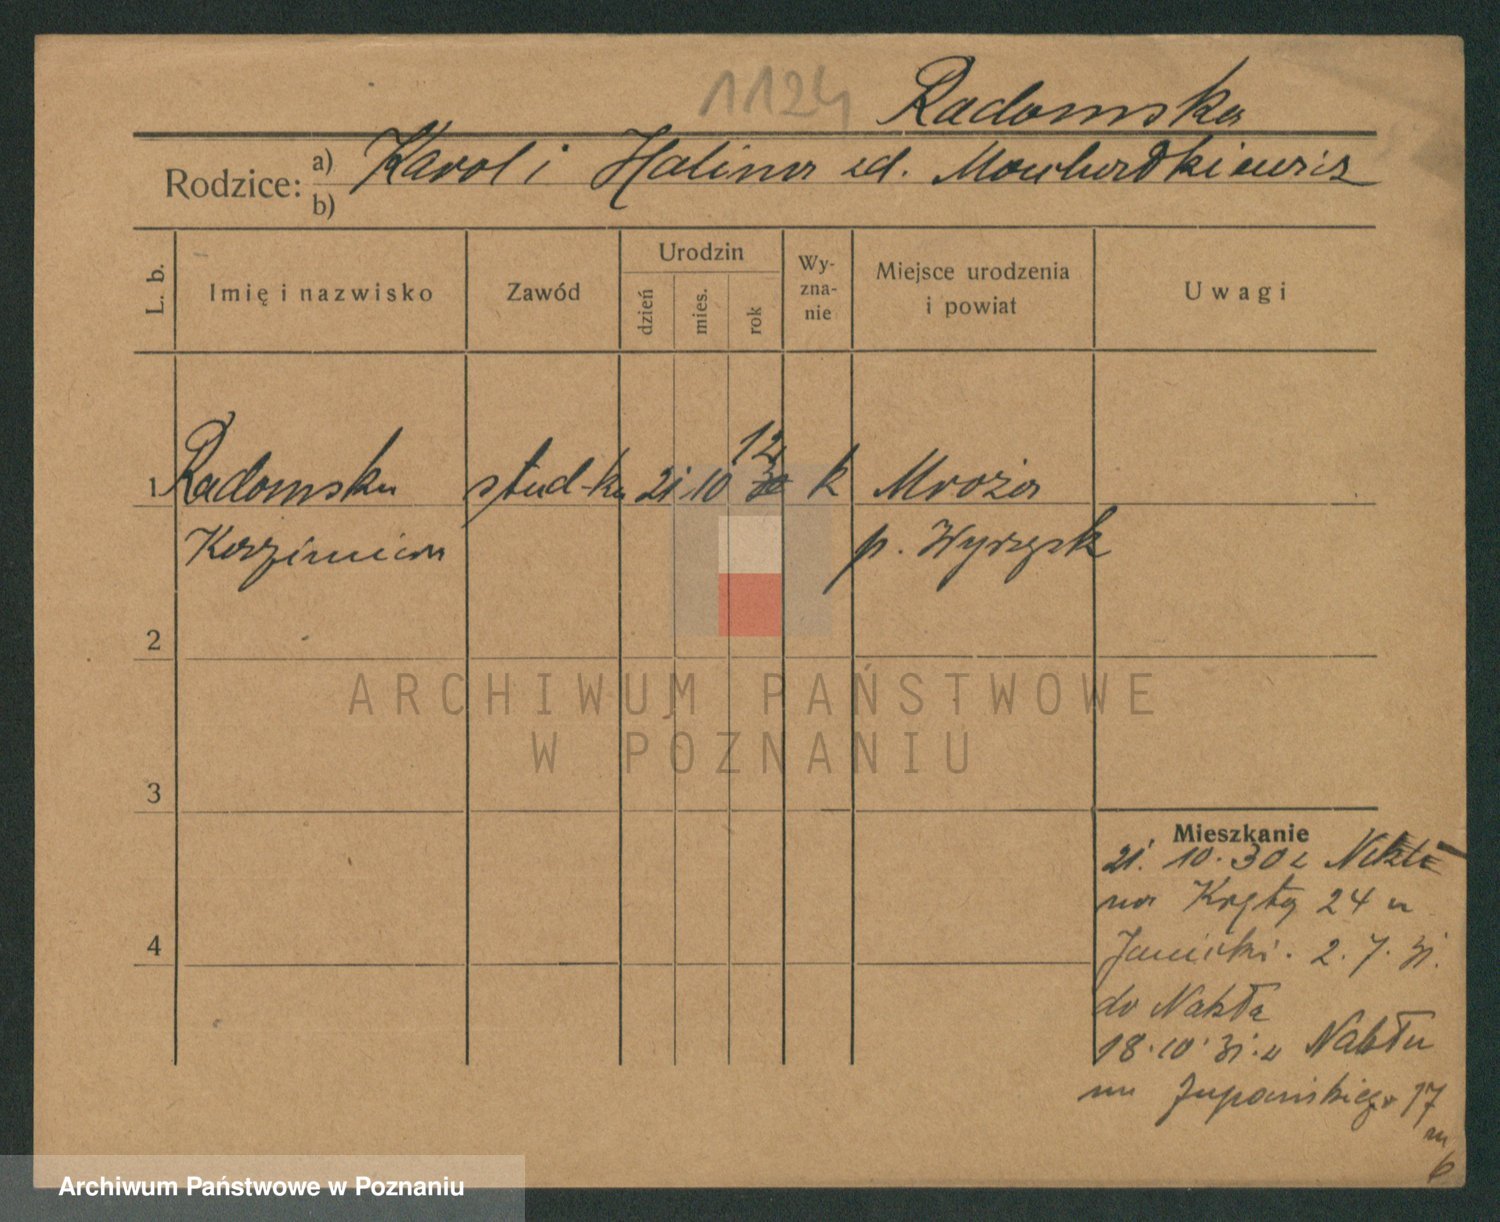 1124 Radomska
Rodzice: a) Karol i Halina zd.
b)
L. b.
Imię i nazwisko
Zawód
Urodzin
dzień
mies.
rok
Wy-
zna-
nie
Miejsce urodzenia
i powiat
Uwagi
12
1 Radomska stud-ka 21 10 30 k Mroża
Kazimiera p. Wyrzysk
2
ARCHIWUM PAŃSTWOWE
W POZNANIU
3
Mieszkanie
21. 10. 30 z Nakła
na Krętą 24 u
Janicki. 2. 7. 31.
do Nakła
18. 10. 31. z Nakłu
na Żupańskiego 17
m
6
4
Archiwum Państwowe w Poznaniu